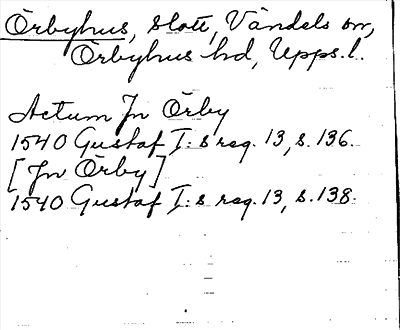 Örbyhus, slott, Vändels sn,
Örbyhus hd, Upps. l.
Actum Jn Örby
1540 Gustaf I:s reg. 13, s. 136.
[Jn Örby]
1540 Gustaf I:s reg. 13, s. 138.